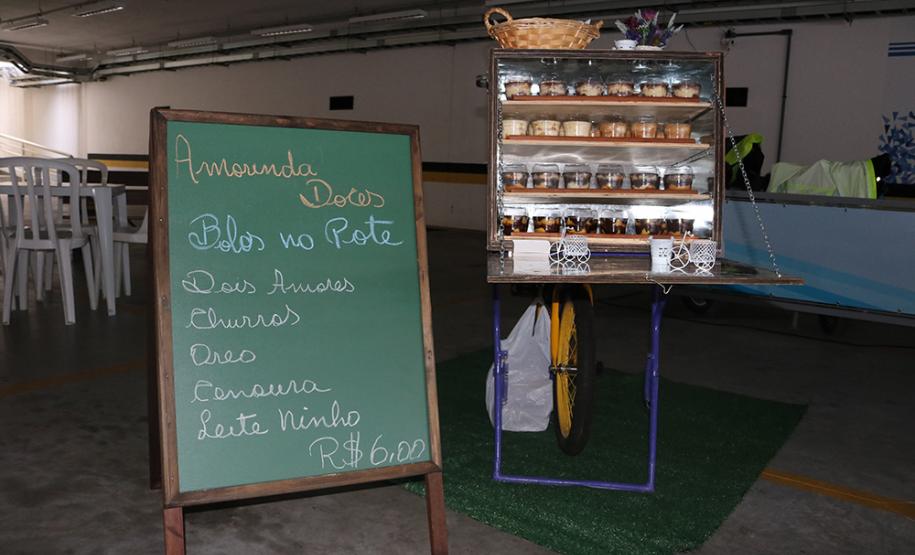 Amorenda
Doces
Bolos no Pote
Dois Amores
Churros
Oreo
Cenoura
Leite Ninho
R$ 6,00